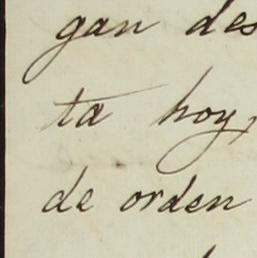 gan des
ta hoy,
de orden